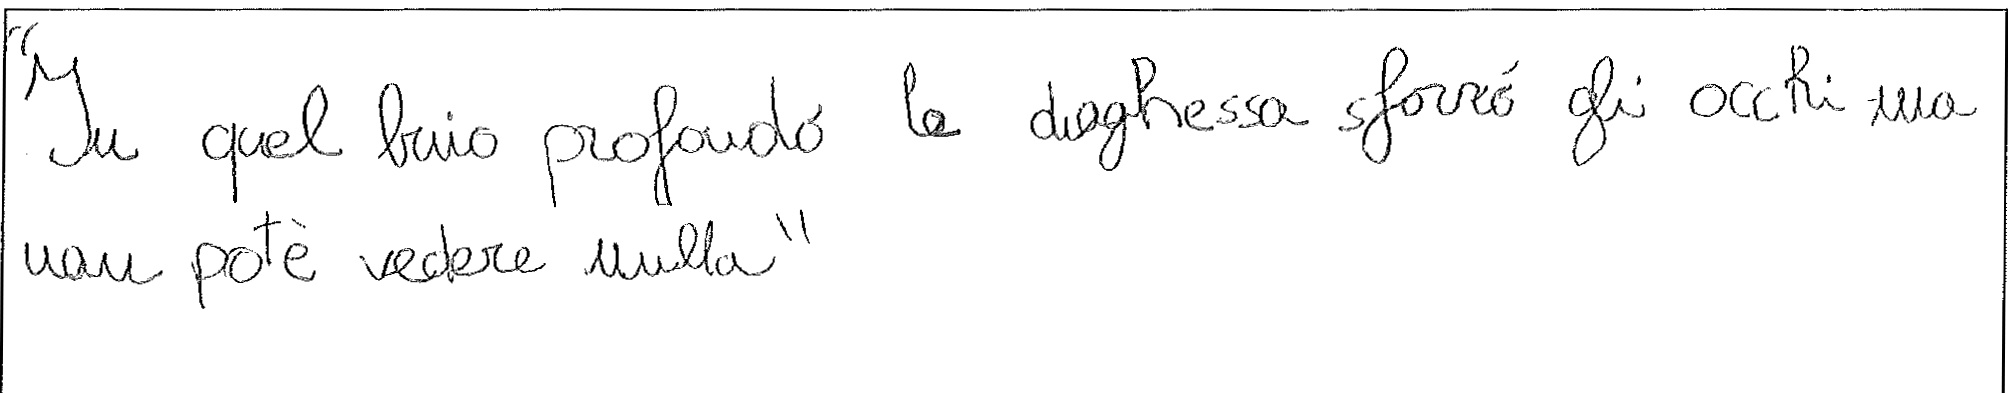 "In quel buio profondo la draghessa sforzó gli occhi ma
non potè vedere nulla"